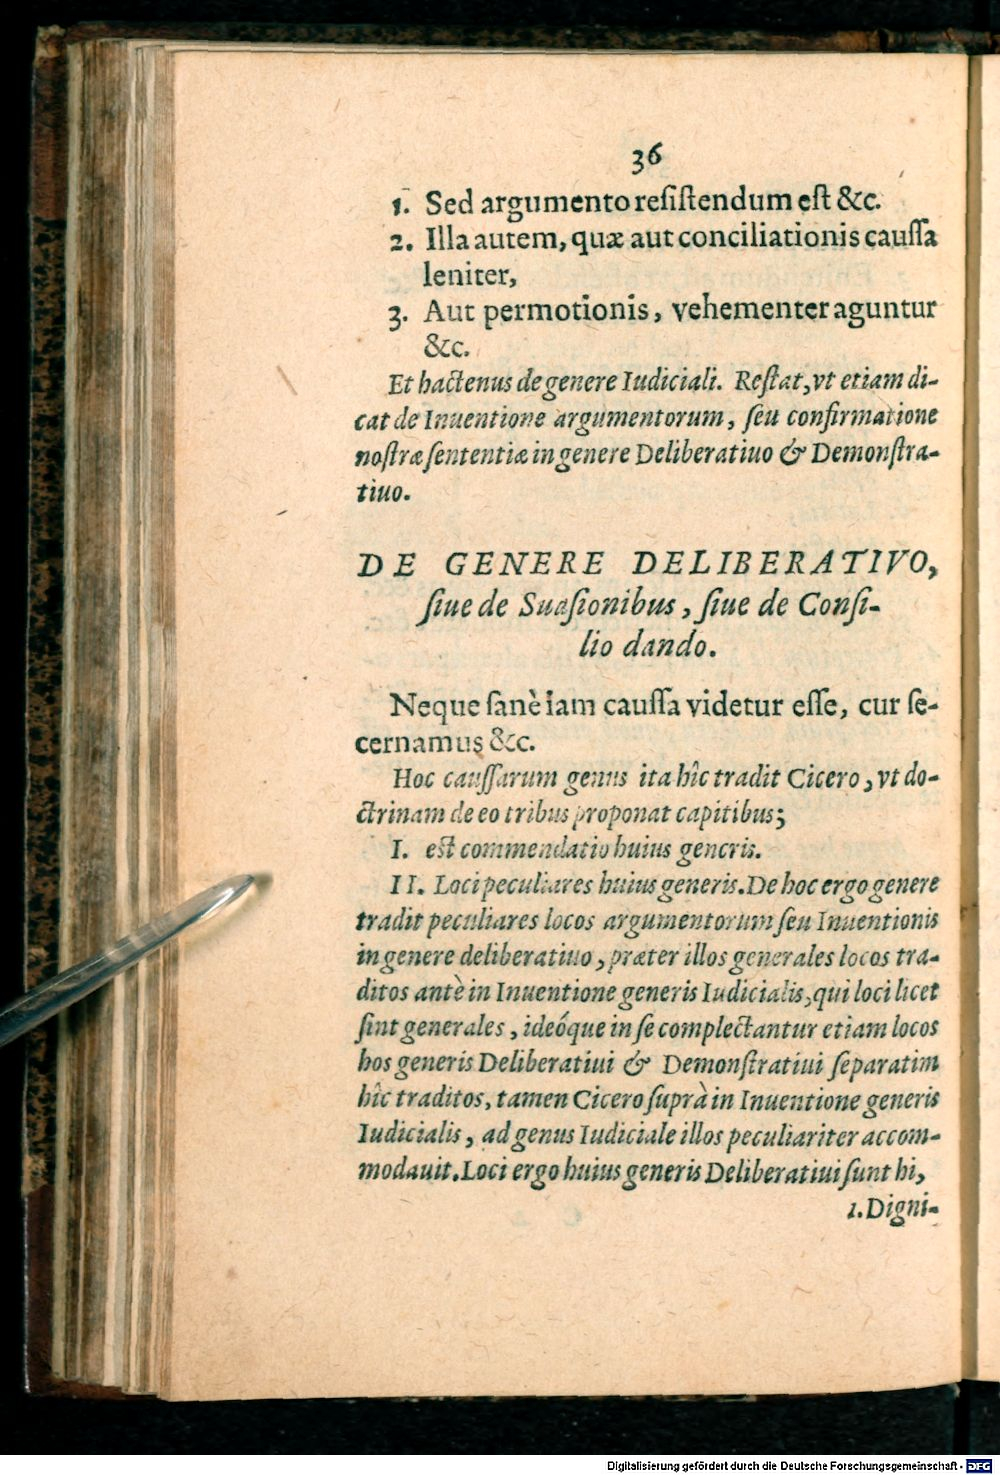 36
1. Sed argumento resiſtendum eſt &c.
2. Illa autem, quæ aut conciliationis cauſſa
leniter,
3. Aut permotionis, vehementer aguntur
&c.
Et hactenus de genere Iudiciali. Reſtat, vt etiam di-
cat de Inuentione argumentorum, ſeu confirmatione
noſtræ ſententiæ in genere Deliberatiuo & Demonſtra-
tiuo.
DE GENERE DELIBERATIVO,
ſiue de Suaſionibus, ſiue de Conſi-
lio dando.
Neque ſanè iam cauſſa videtur eſſe, cur ſe-
cernamus &c.
Hoc cauſſarum genus ita hîc tradit Cicero, vt do-
ctrinam de eo tribus proponat capitibus;
I. eſt commendatio huius generis.
II. Loci peculiares huius generis. De hoc ergo genere
tradit peculiares locos argumentorum ſeu Inuentionis
in genere deliberatiuo, præter illos generales locos tra-
ditos antè in Inuentione generis Iudicialis, qui loci licet
ſint generales, ideóque in ſe complectantur etiam locos
hos generis Deliberatiui & Demonſtratiui ſeparatim
hîc traditos, tamen Cicero ſuprà in Inuentione generis
Iudicialis, ad genus Iudiciale illos peculiariter accom-
modauit. Loci ergo huius generis Deliberatiui ſunt hi,
1. Digni-
Digitalisierung gefördert durch die Deutsche Forschungsgemeinschaft - DFG